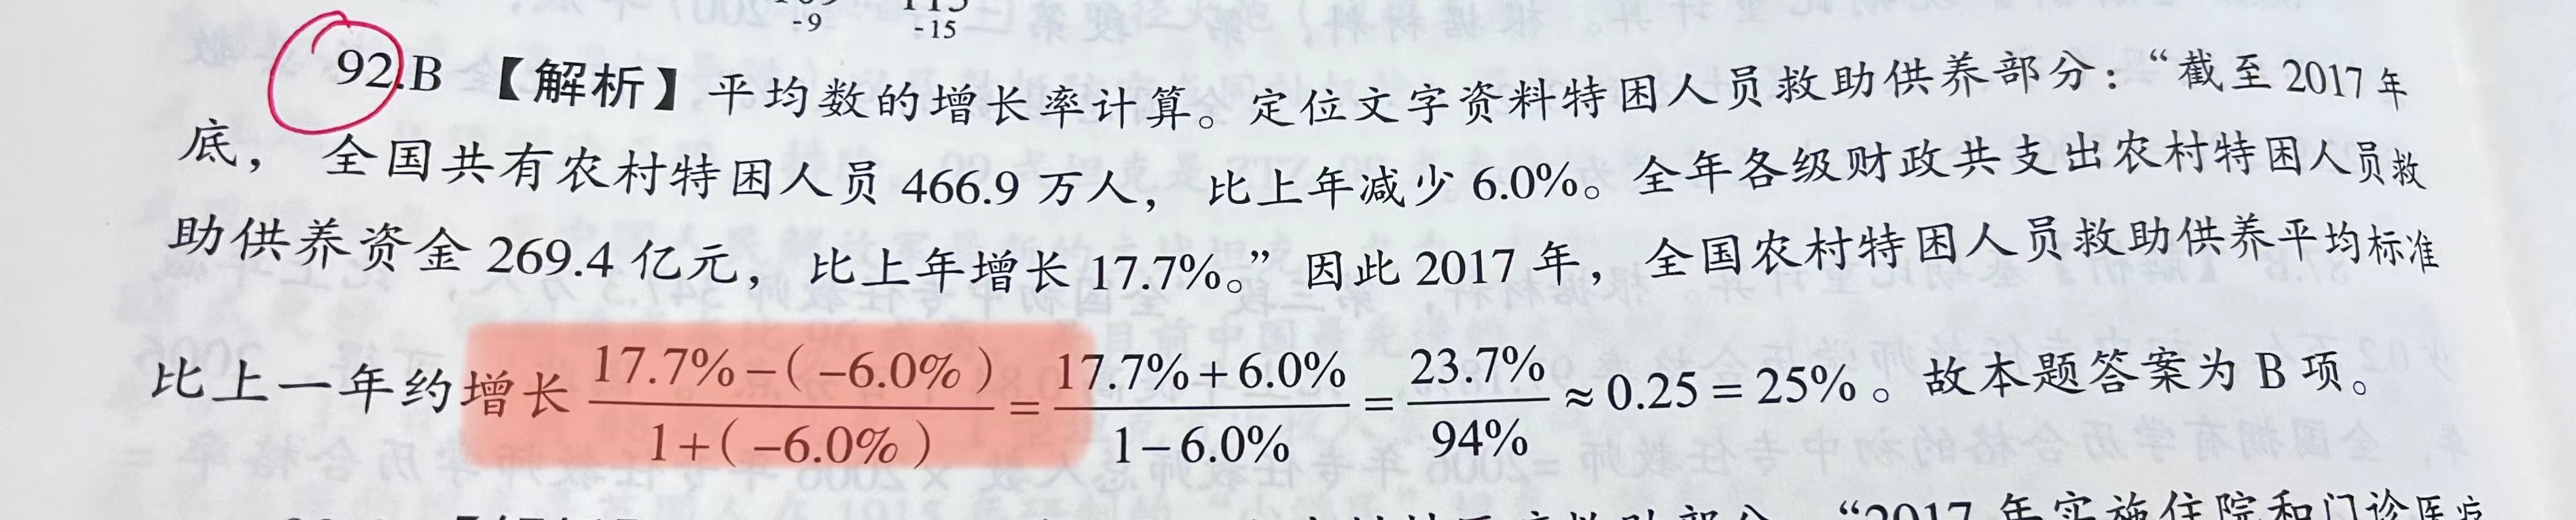 -9 -15
92.B 【解析】平均数的增长率计算。定位文字资料特困人员救助供养部分：“截至 2017 年
底， 全国共有农村特困人员 466.9 万人， 比上年减少 6.0%。全年各级财政共支出农村特困人员救
助供养资金 269.4 亿元， 比上年增长 17.7%。” 因此 2017 年， 全国农村特困人员救助供养平均标准
比上一年约增长 \frac{17.7%-(-6.0%)}{1+(-6.0%)} = \frac{17.7%+6.0%}{1-6.0%} = \frac{23.7%}{94%} ≈ 0.25 = 25% 。故本题答案为 B 项。
“2017 年实施住院和门诊医疗